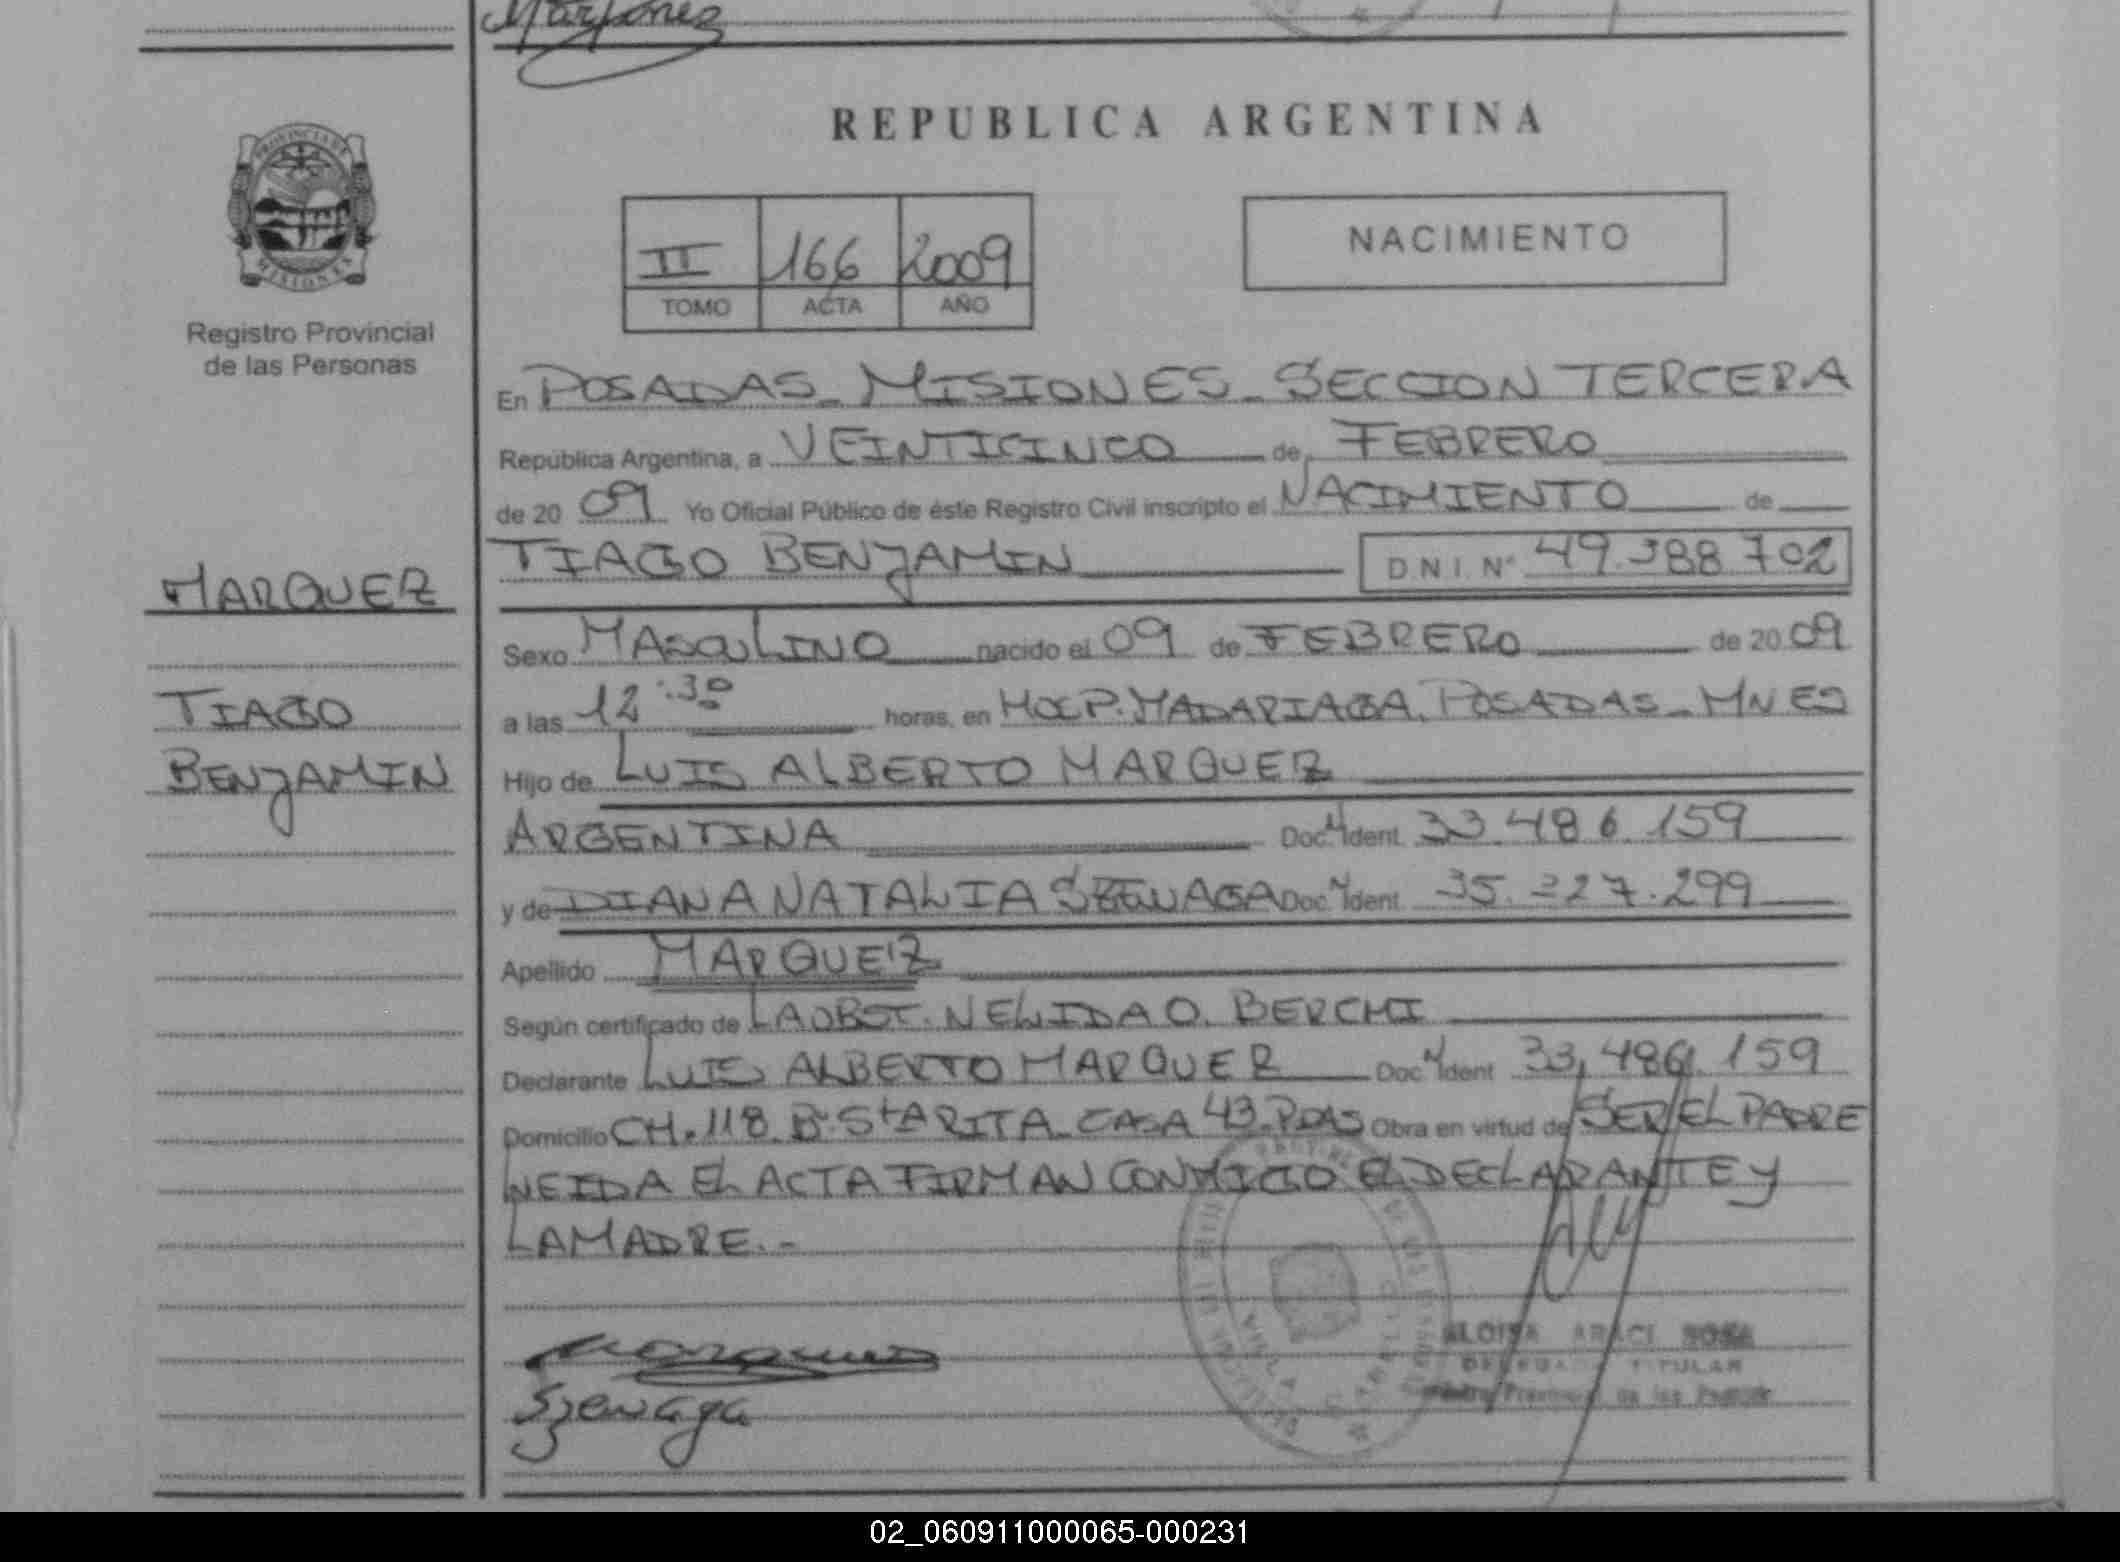 REPUBLICA ARGENTINA
PROVINCIA DE
MISIONES
II 166 2009
TOMO ACTA AÑO
NACIMIENTO
Registro Provincial
de las Personas
En POSADAS_ MISIONES_ SECCION TERCERA
República Argentina, a VEINTICINCO de FEBRERO
de 20 09 Yo Oficial Público de éste Registro Civil inscripto el NACIMIENTO de
TIAGO BENJAMIN D.N.I. Nº 49.388.702
MARQUEZ
TIAGO
BENJAMIN
Sexo MASCULINO nacido el 09 de FEBRERO de 20 09
a las 12:30 horas, en HOSP. MADARIAGA. POSADAS_ MNES
Hijo de LUIS ALBERTO MARQUEZ
ARGENTINA Doc. Ident. 33.486.159
y de DIANA NATALIA SZEWAGA Doc. Ident. 35.327.299
Apellido MARQUEZ
Según certificado de LA OBST. NELIDA O. BERCHI
Declarante LUIS ALBERTO MARQUEZ Doc. Ident 33.486.159
Domicilio CH. 118 Bº StA RITA_ CASA 43_ PDAS Obra en virtud de SER EL PADRE
LEIDA EL ACTA FIRMAN CONMIGO EL DECLARANTE Y
LA MADRE.-
Szewaga
DELEGADA TITULAR
02_060911000065-000231